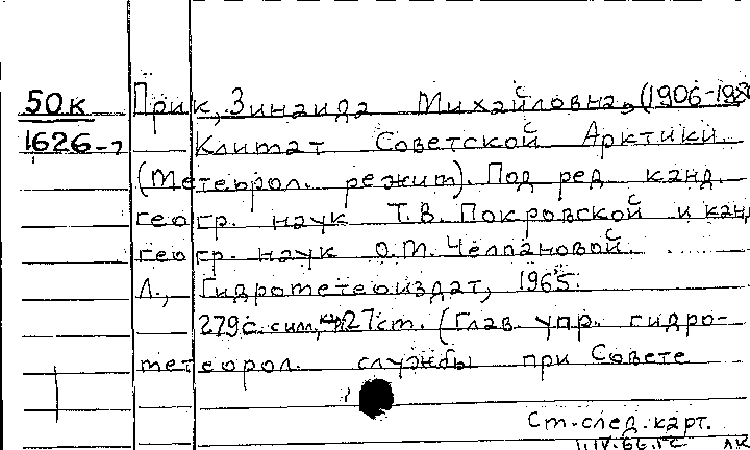 50.к Прик, Зинаида Михайловна, (1906-198
1626-7 Климат Советской Арктики.
(Метеорол. режим). Под ред канд.
геогр. наук Т.В. Покровской и канд
геогр. наук О.М. Челпановой.
Л., Гидрометеоиздат, 1965.
279 с. с илл, 27 см. (Глав. упр. гидро-
метеорол. службы при Совете
Ст. след. карт.